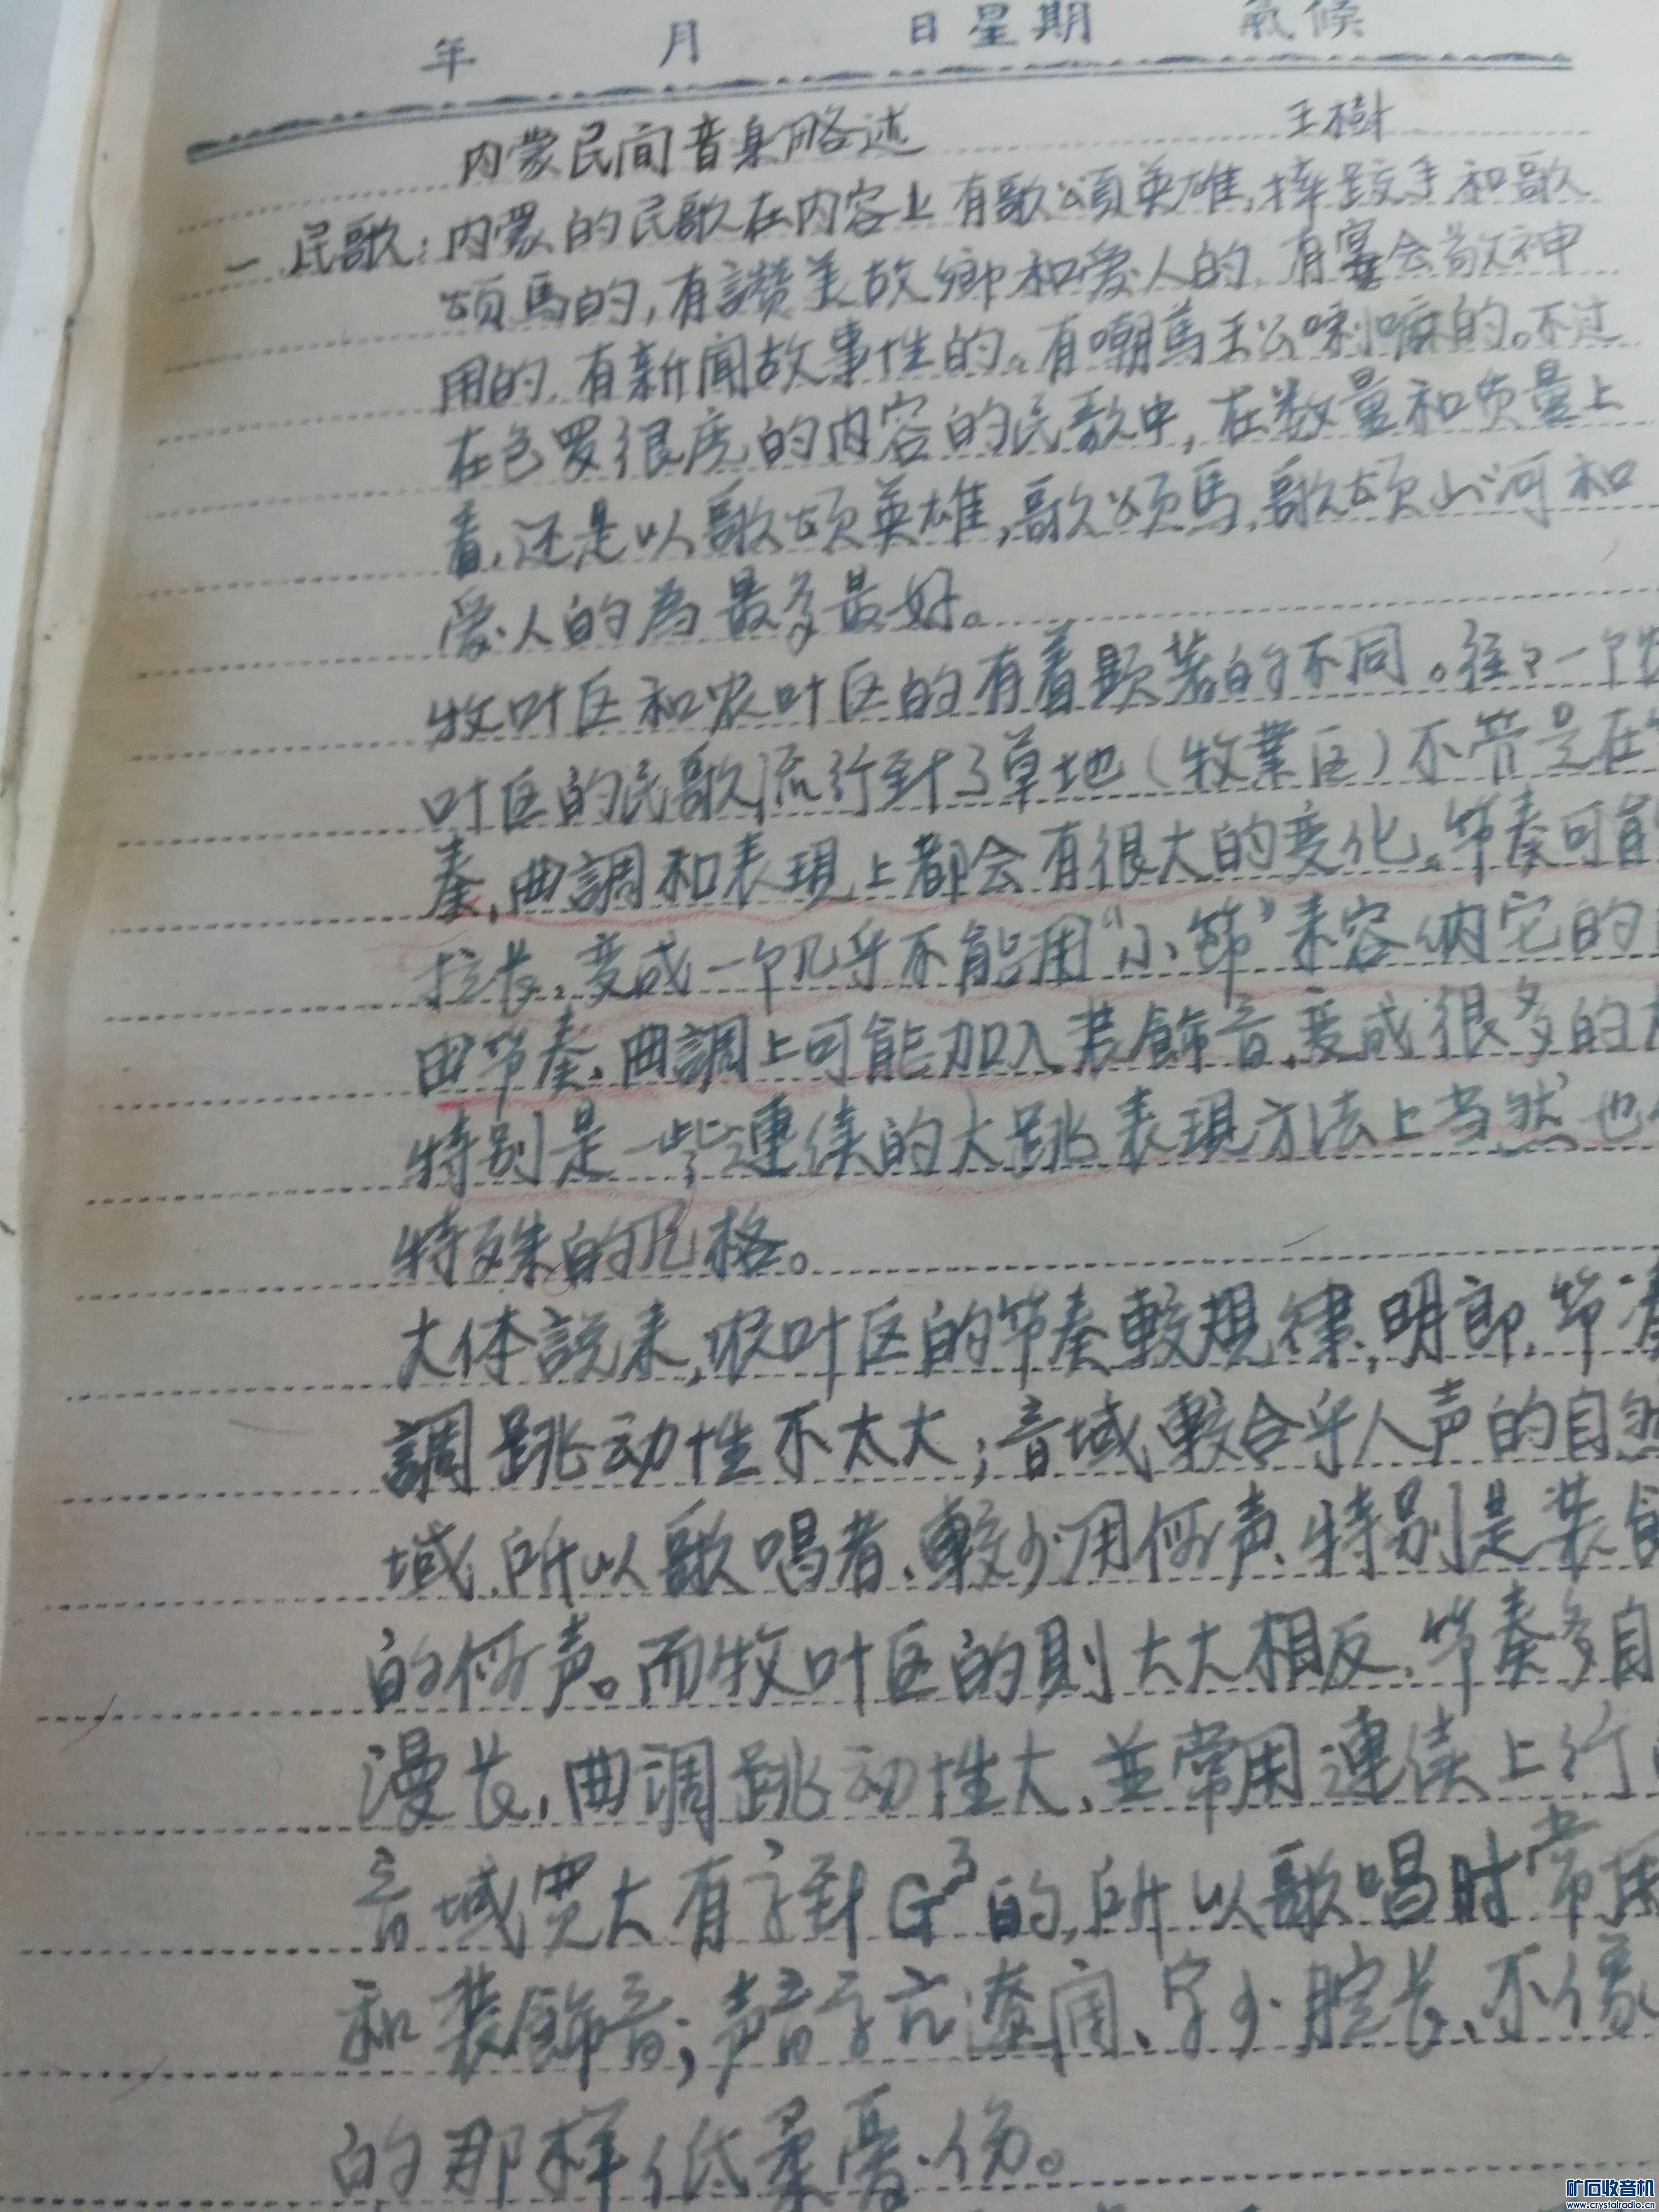 年 月 日 星期 氣候
内蒙民间音乐略述 王樹
一 民歌：内蒙的民歌在内容上有歌頌英雄,摔跤手和歌
頌馬的,有讚美故鄉和爱人的,有宴会敬神
用的,有新闻故事性的。有嘲罵王公喇嘛的。不过
在包罗很广的内容的民歌中,在数量和质量上
看,还是以歌颂英雄,歌颂馬,歌颂山河和
爱人的為最多最好。
牧叶区和农叶区的有着顕著的不同。往々一个农
叶区的民歌流行到了草地(牧業区)不管是在节
奏,曲調和表現上都会有很大的变化。节奏可能
拉长,变成一个几乎不能用“小節”来容纳它的
由节奏,曲調上可能加入装飾音,变成很多的大
特别是一些連续的大跳表現方法上当然也
特殊的风格。
大体説来,农叶区的节奏較規律,明郎,节奏
調跳动性不太大；音域較合乎人声的自然
域,所以歌唱者,較少用何声,特别是装飾
的何声。而牧叶区的則大大相反,节奏多自
漫长,曲调跳动性大,並常用連续上行
音域宽大有高到G³的,所以歌唱时常用
和装飾音；声音高亢遼阔,字少腔长,不像
的那样低柔憂伤。
矿石收音机
www.crystalradio.cn